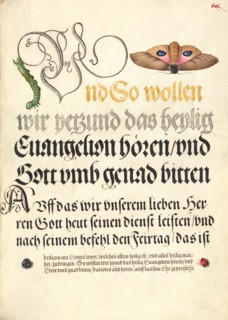 Und So wollen
wir yetzund das heylig
Euangelion hören/vnd
Gott vmb genad bitten
Auff das wir vnserem lieben Her
ren Gott heut seinen dienst leisten/vnd
nach seinem befehl den Feirtag/das ist